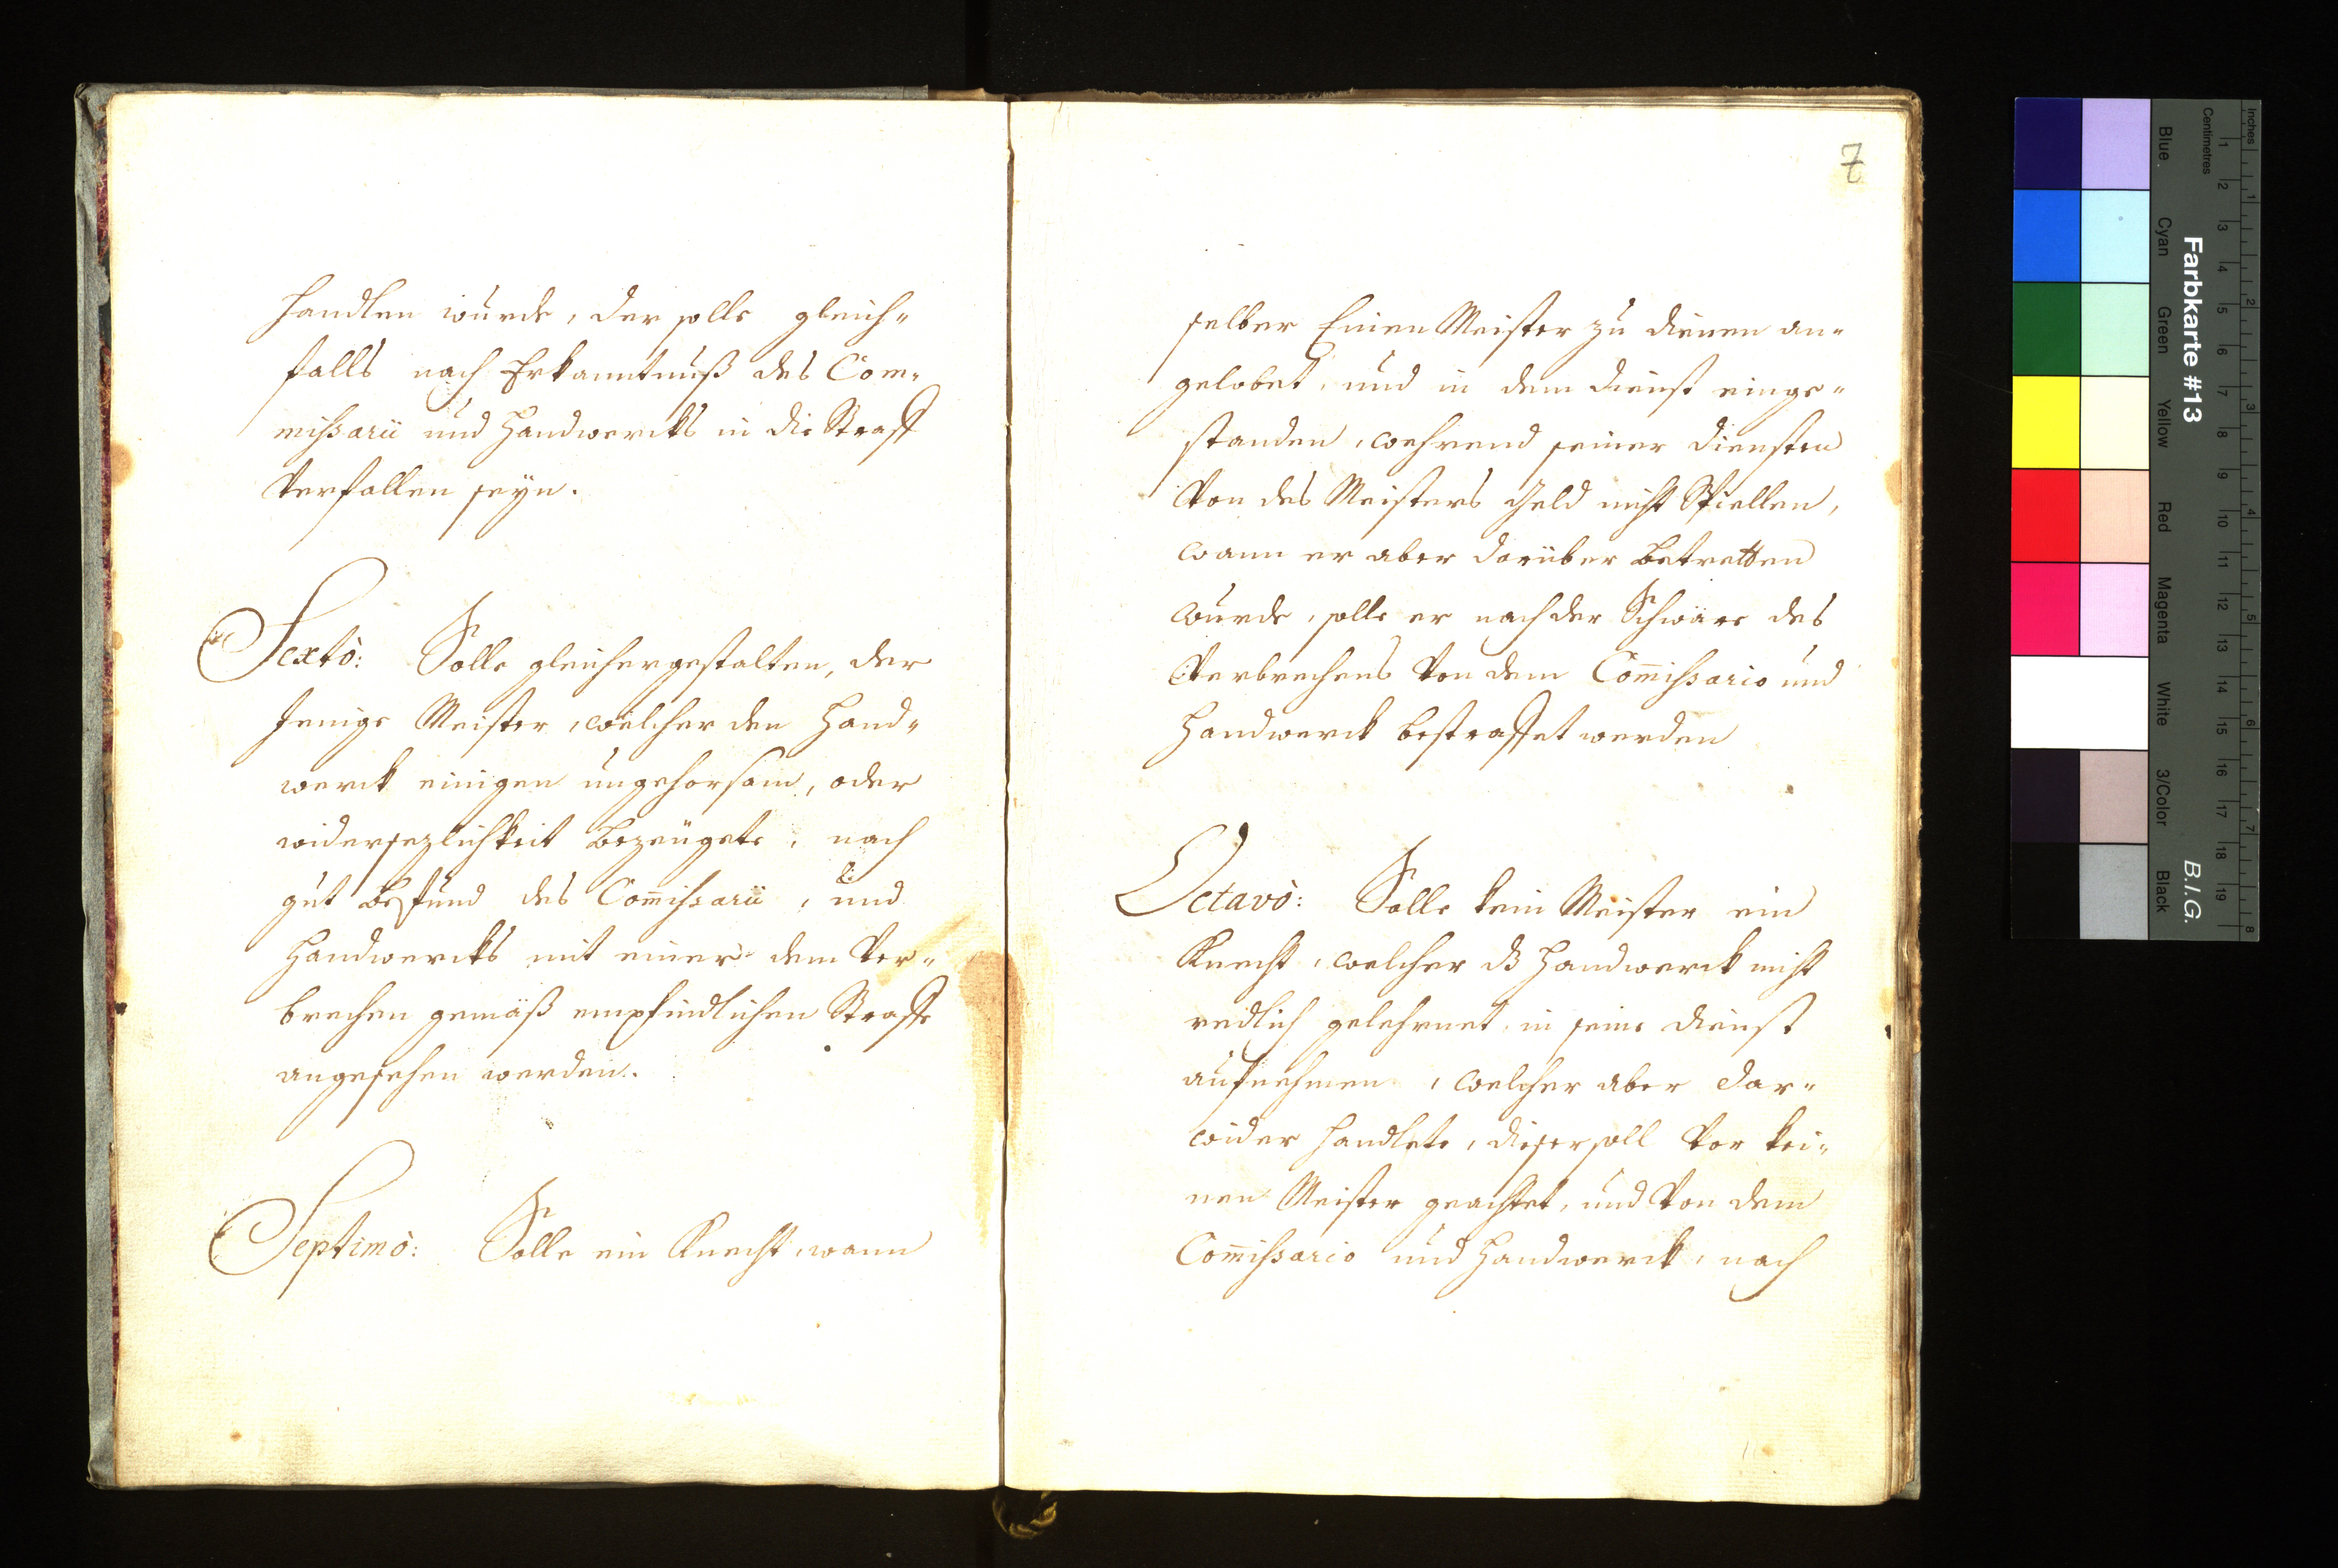 handlen wurde, der solle gleich-
falls nach Erkanntnuß des Com-
missarii und Handwercks in die Straff
Verfallen seyn.
Sexto: Solle gleichergestalten, der
Jenige Meister, welcher den Hand-
werck einigen ungehorsam, oder
widersezlichkeit bezeugete, nach
gut befund des Com̄issarii, und
Handwercks mit einer dem Ver-
brechen gemäß empfindlichen Straffe
angesehen werden.
Septimo: Solle ein Knecht, wann
7
selber Einen Meister zu dienen an-
gelobet, und in dem dienst einge-
standen, wehrend seiner diensten
Von des Meisters geld nicht Spiellen,
wann er aber darüber betretten
wurde, solle er nach der Schwäre des
Verbrechens Von dem Com̄issario und
Handwerck bestraffet werden
Octavo: Solle kein Meister ein
Knecht, welcher dß Handwerck nicht
redlich gelehrnet, in seine dienst
aufnehmen, welcher aber dar-
wider handlete, dieser soll Vor kei-
nen Meister geachtet, und Von dem
Com̄issario und Handwerck, nach
Inches
Centimetres
1 2 3 4 5 6 7 8 9 10 11 12 13 14 15 16 17 18 19
1 2 3 4 5 6 7 8
Farbkarte #13
B.I.G.
Blue Cyan Green Yellow Red Magenta White 3/Color Black